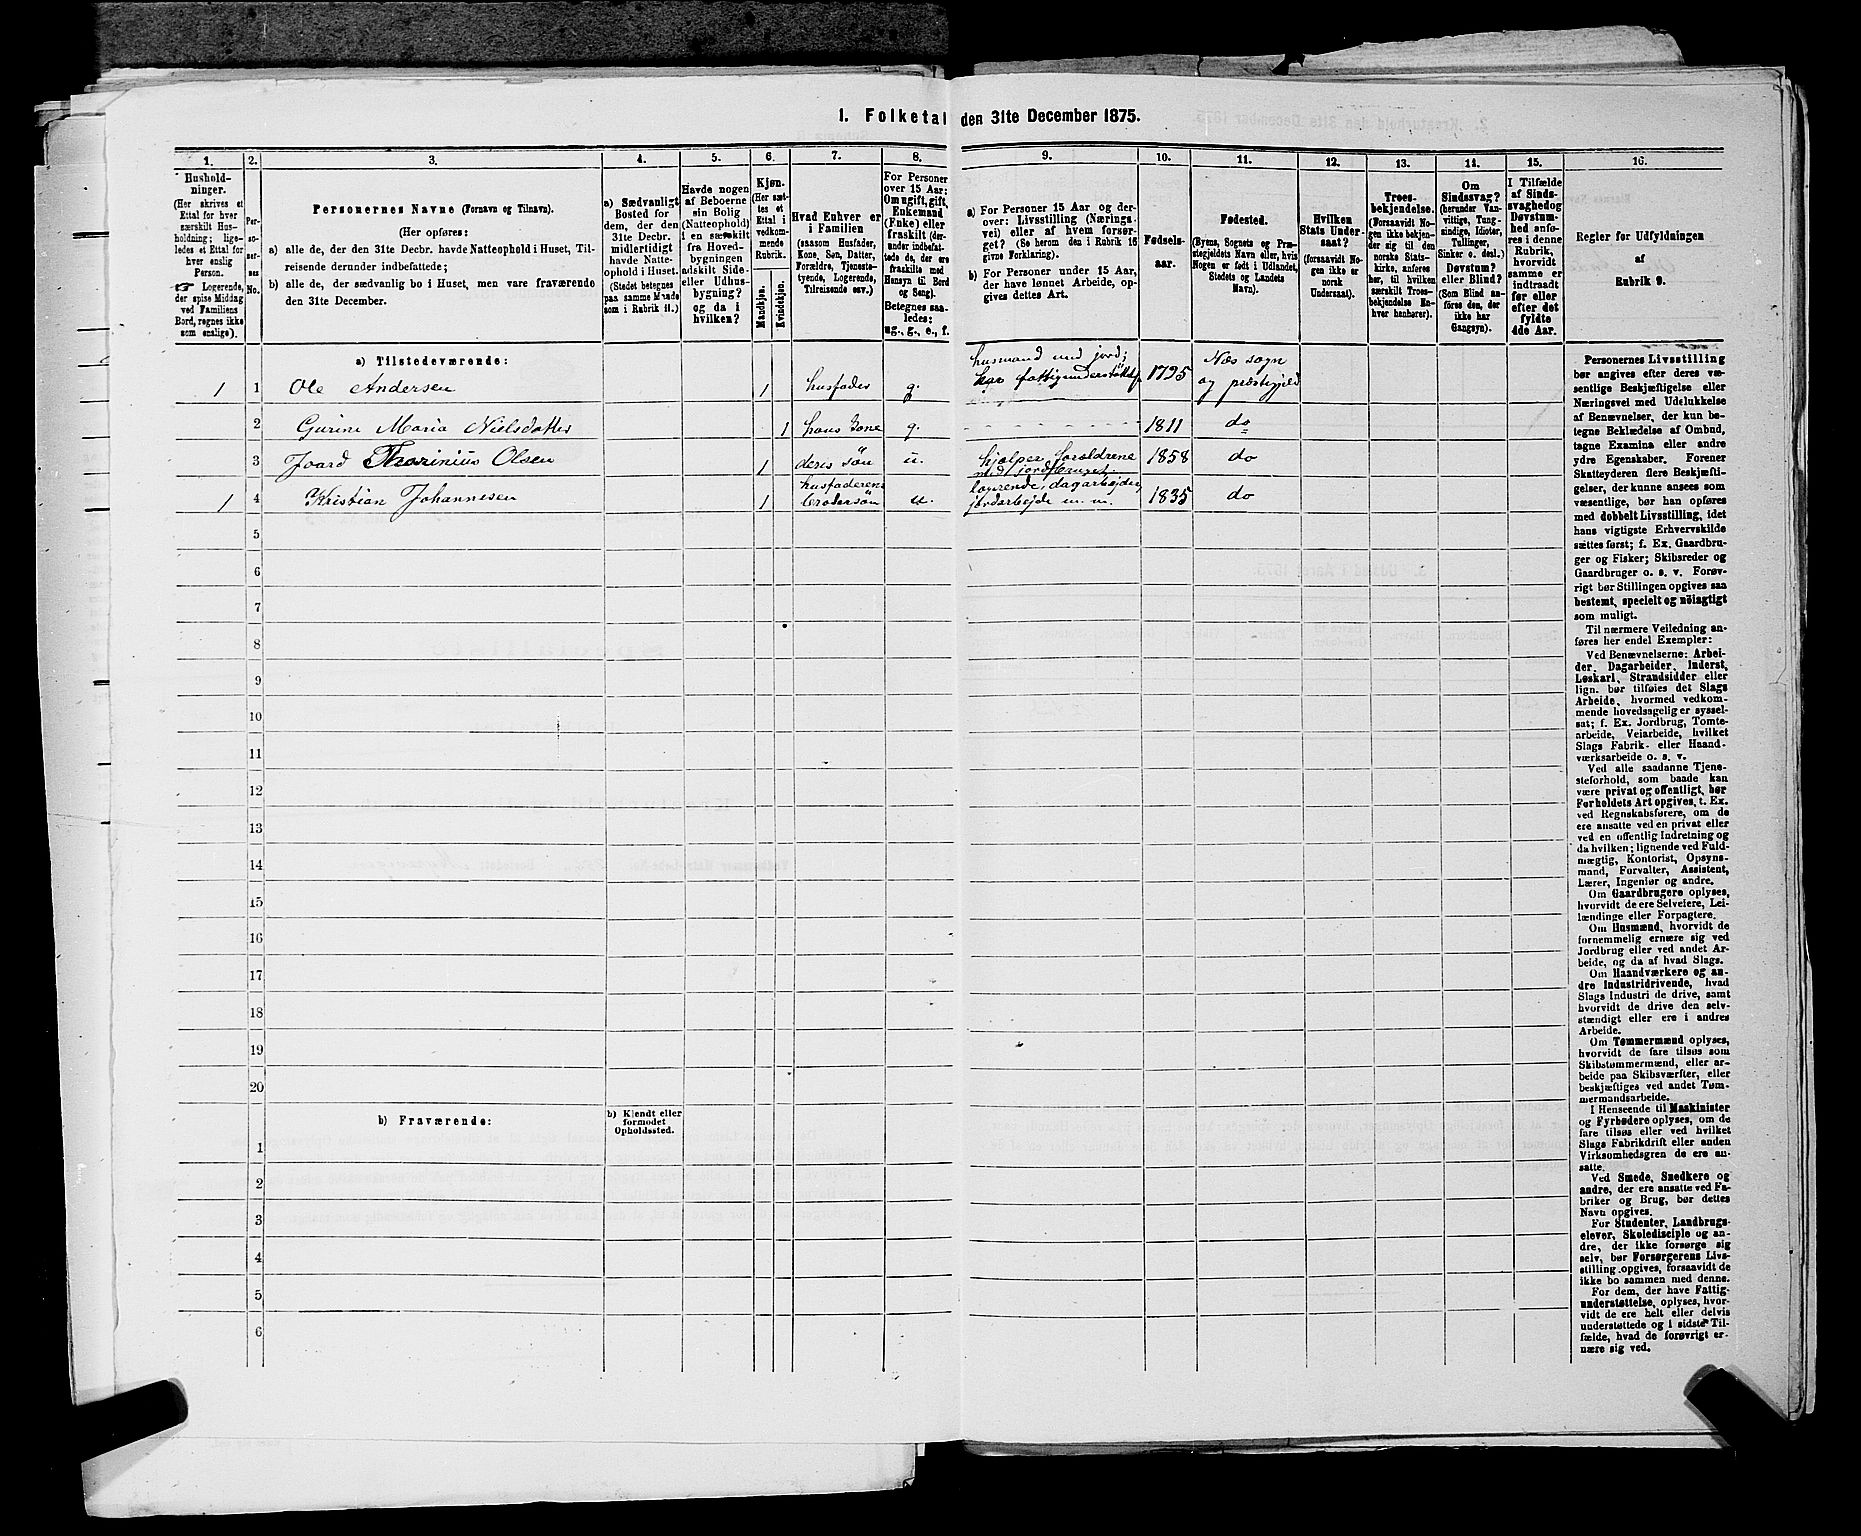 1. Folketal den 31te December 1875.
1.
2.
3.
4.
5.
6.
7.
8.
9.
10.
11.
12.
13.
14.
15.
16.
Hushold-
ninger.
(Her skrives et
Ettal for hver
særskilt Hus-
holdning; lige-
ledes et Ettal for
hver enslig
Person.
☞ Logerende,
der spise Middag
ved Familiens
Bord, regnes ikke
som enslige).
Per-
so-
ner-
nes
No.
Personernes Navne (Fornavn og Tilnavn).
(Her opføres:
a) alle de, der den 31te Decbr. havde Natteophold i Huset, Til-
reisende derunder indbefattede;
b) alle de, der sædvanlig bo i Huset, men vare fraværende
den 31te December.
a) Sædvanligt
Bosted for
dem, der den
31te Decbr.
midlertidigt
havde Natte-
ophold i Huset.
(Stedet betegnes
paa samme Maade
som i Rubrik 11.)
Havde nogen
af Beboerne
sin Bolig
(Natteophold)
i en særskilt
fra Hoved-
bygningen
adskilt Side-
eller Udhus-
bygning?
og da i
hvilken?
Kjøn.
(Her sæt-
tes et
Ettal i
vedkom-
mende
Rubrik.
Mandkjøn.
Kvindekjøn.
Hvad Enhver er
i Familien
(saasom Husfader,
Kone, Søn, Datter,
Forældre, Tjeneste-
tyende, Logerende,
Tilreisende osv.)
For Personer
over 15 Aar:
Om ugift, gift,
Enkemand
(Enke) eller
fraskilt (der-
under indbefat-
tede de, der ere
fraskilte med
Hensyn til Bord
og Seng).
Betegnes saa-
ledes:
ug., g., e., f.
a) For Personer 15 Aar og der-
over: Livsstilling (Nærings-
vei) eller af hvem forsør-
get? (Se herom den i Rubrik 16
givne Forklaring).
b) For Personer under 15 Aar,
der have lønnet Arbeide, op-
gives dettes Art.
Fødsels-
aar.
Fødested.
(Byens, Sognets og Præ-
stegjeldets Navn eller, hvis
Nogen er født i Udlandet,
Stedets og Landets
Navn).
Hvilken
Stats Under-
saat?
(forsaavidt No-
gen ikke er
norsk
Undersaat).
Troes-
bekjendelse.
(Forsaavidt No-
gen ikke bekjen-
der sig til den
norske Stats-
kirke, anføres
her, til hvilken
særskilt Troes-
bekjendelse En-
hver henhører).
Om
Sindssvag?
(herunder Van-
vittige, Tung-
sindige, Idioter,
Tullinger,
Sinker o. desl.).
Døvstum?
eller Blind?
(Som Blind an-
føres den, der
ikke har
Gangsyn).
I Tilfælde
af Sinds-
svaghed og
Døvstum-
hed anfø-
res i denne
Rubrik,
hvorvidt
samme er
indtraadt
før eller
efter det
fyldte
4de Aar.
Regler for Udfyldningen
af
Rubrik 9.
a) Tilstedeværende:
1 1 Ole Andersen 1 husfader g. husmand med jord; har fattigunderstøttelse 1795 Næs sogn og præstegjeld
2 Gurine Maria Nielsdatter 1 hans kone g. 1811 do
3 Joard Thorinius Olsen 1 deres søn u. hjælper forældrene med jordbruget. 1858 do
1 4 Kristian Johannesen 1 husfaderens brodersøn u. logerende, dagarbejder, jordarbejde m. m. 1835 do
5
6
7
8
9
10
11
12
13
14
15
16
17
18
19
20
b) Fraværende:
b) Kjendt eller
formodet
Opholdssted.
1
2
3
4
5
6
Personernes Livsstilling
bør angives efter deres væ-
sentlige Beskjæftigelse eller
Næringsvei med Udelukkelse
af Benævnelser, der kun be-
tegne Beklædelse af Ombud,
tagne Examina eller andre
ydre Egenskaber. Forener
Skatteyderen flere Beskjæfti-
gelser, der kunne ansees som
væsentlige, bør han opføres
med dobbelt Livsstilling, idet
hans vigtigste Erhvervskilde
sættes først; f. Ex. Gaardbru-
ger og Fisker; Skibsreder og
Gaardbruger o. s. v. Forøv-
rigt bør Stillingen opgives saa
bestemt, specielt og nøiagtigt
som muligt.
Til nærmere Veiledning an-
føres her endel Exempler:
Ved Benævnelserne: Arbei-
der, Dagarbeider, Inderst,
Løskarl, Strandsidder eller
lign. bør tilføies det Slags
Arbeide, hvormed vedkom-
mende hovedsagelig er syssel-
sat; f. Ex. Jordbrug, Tomte-
arbeide, Veiarbeide, hvilket
Slags Fabrik- eller Haand-
værksarbeide o. s. v.
Ved alle saadanne Tjene-
steforhold, som baade kan
være privat og offentligt, bør
Forholdets Art opgives, t. Ex.
ved Regnskabsførere, om de
ere ansatte ved en privat eller
ved en offentlig Indretning og
da hvilken; lignende ved Fuld-
mægtig, Kontorist, Opsyns-
mand, Forvalter, Assistent,
Lærer, Ingeniør og andre.
Om Gaardbrugere oplyses,
hvorvidt de ere Selveiere, Lei-
lændinge eller Forpagtere.
Om Husmænd, hvorvidt de
fornemmelig ernære sig ved
Jordbrug eller ved andet Ar-
beide, og da af hvad Slags.
Om Haandværkere og an-
dre Industridrivende, hvad
Slags Industri de drive, samt
hvorvidt de drive den selv-
stændigt eller ere i andres
Arbeide.
Om Tømmermænd oplyses,
hvorvidt de fare tilsøs som
Skibstømmermænd, eller ar-
beide paa Skibsværfter, eller
beskjæftiges ved andet Tøm-
mermandsarbeide.
I Henseende til Maskinister
og Fyrbødere oplyses, om de
fare tilsøs eller ved hvilket
Slags Fabrikdrift eller anden
Virksomhedsgren de ere an-
satte.
Ved Smede, Snedkere og
andre, der ere ansatte ved Fa-
briker og Brug, bør dettes
Navn opgives.
For Studenter, Landbrugs-
elever, Skoledisciple og an-
dre, der ikke forsørge sig
selv, bør Forsørgerens Livs-
stilling opgives, forsaavidt de
ikke bo sammen med denne.
For dem, der have Fattig-
understøttelse, oplyses, hvor-
vidt de ere helt eller delvis
understøttede og i sidste Til-
fælde, hvad de forøvrigt er-
nære sig ved.